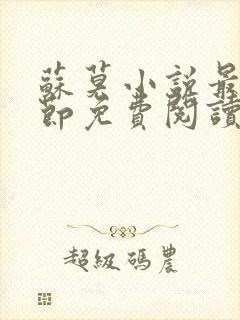 蘇莫小說最
節免費閱讀
超級碼農